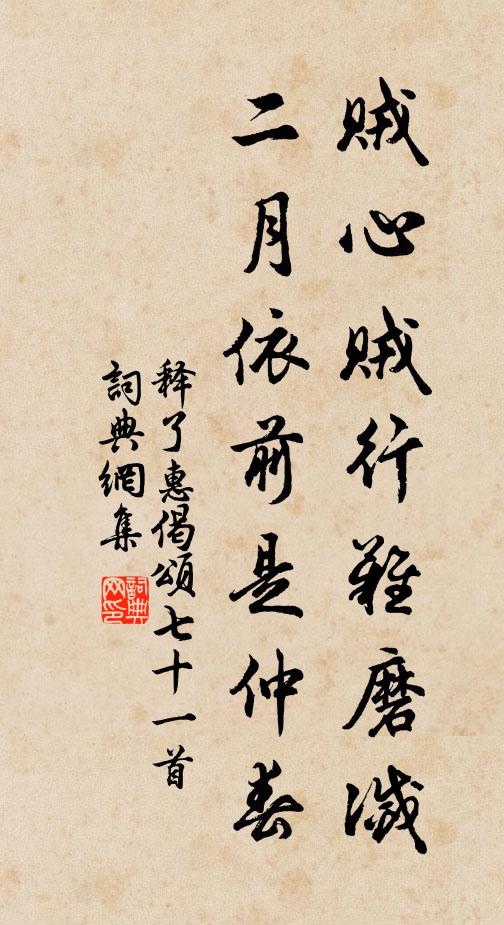 贼心贼行难磨滅
二月依前是仲春
释了惠偈頌七十一首
詞典網集
詞典网印